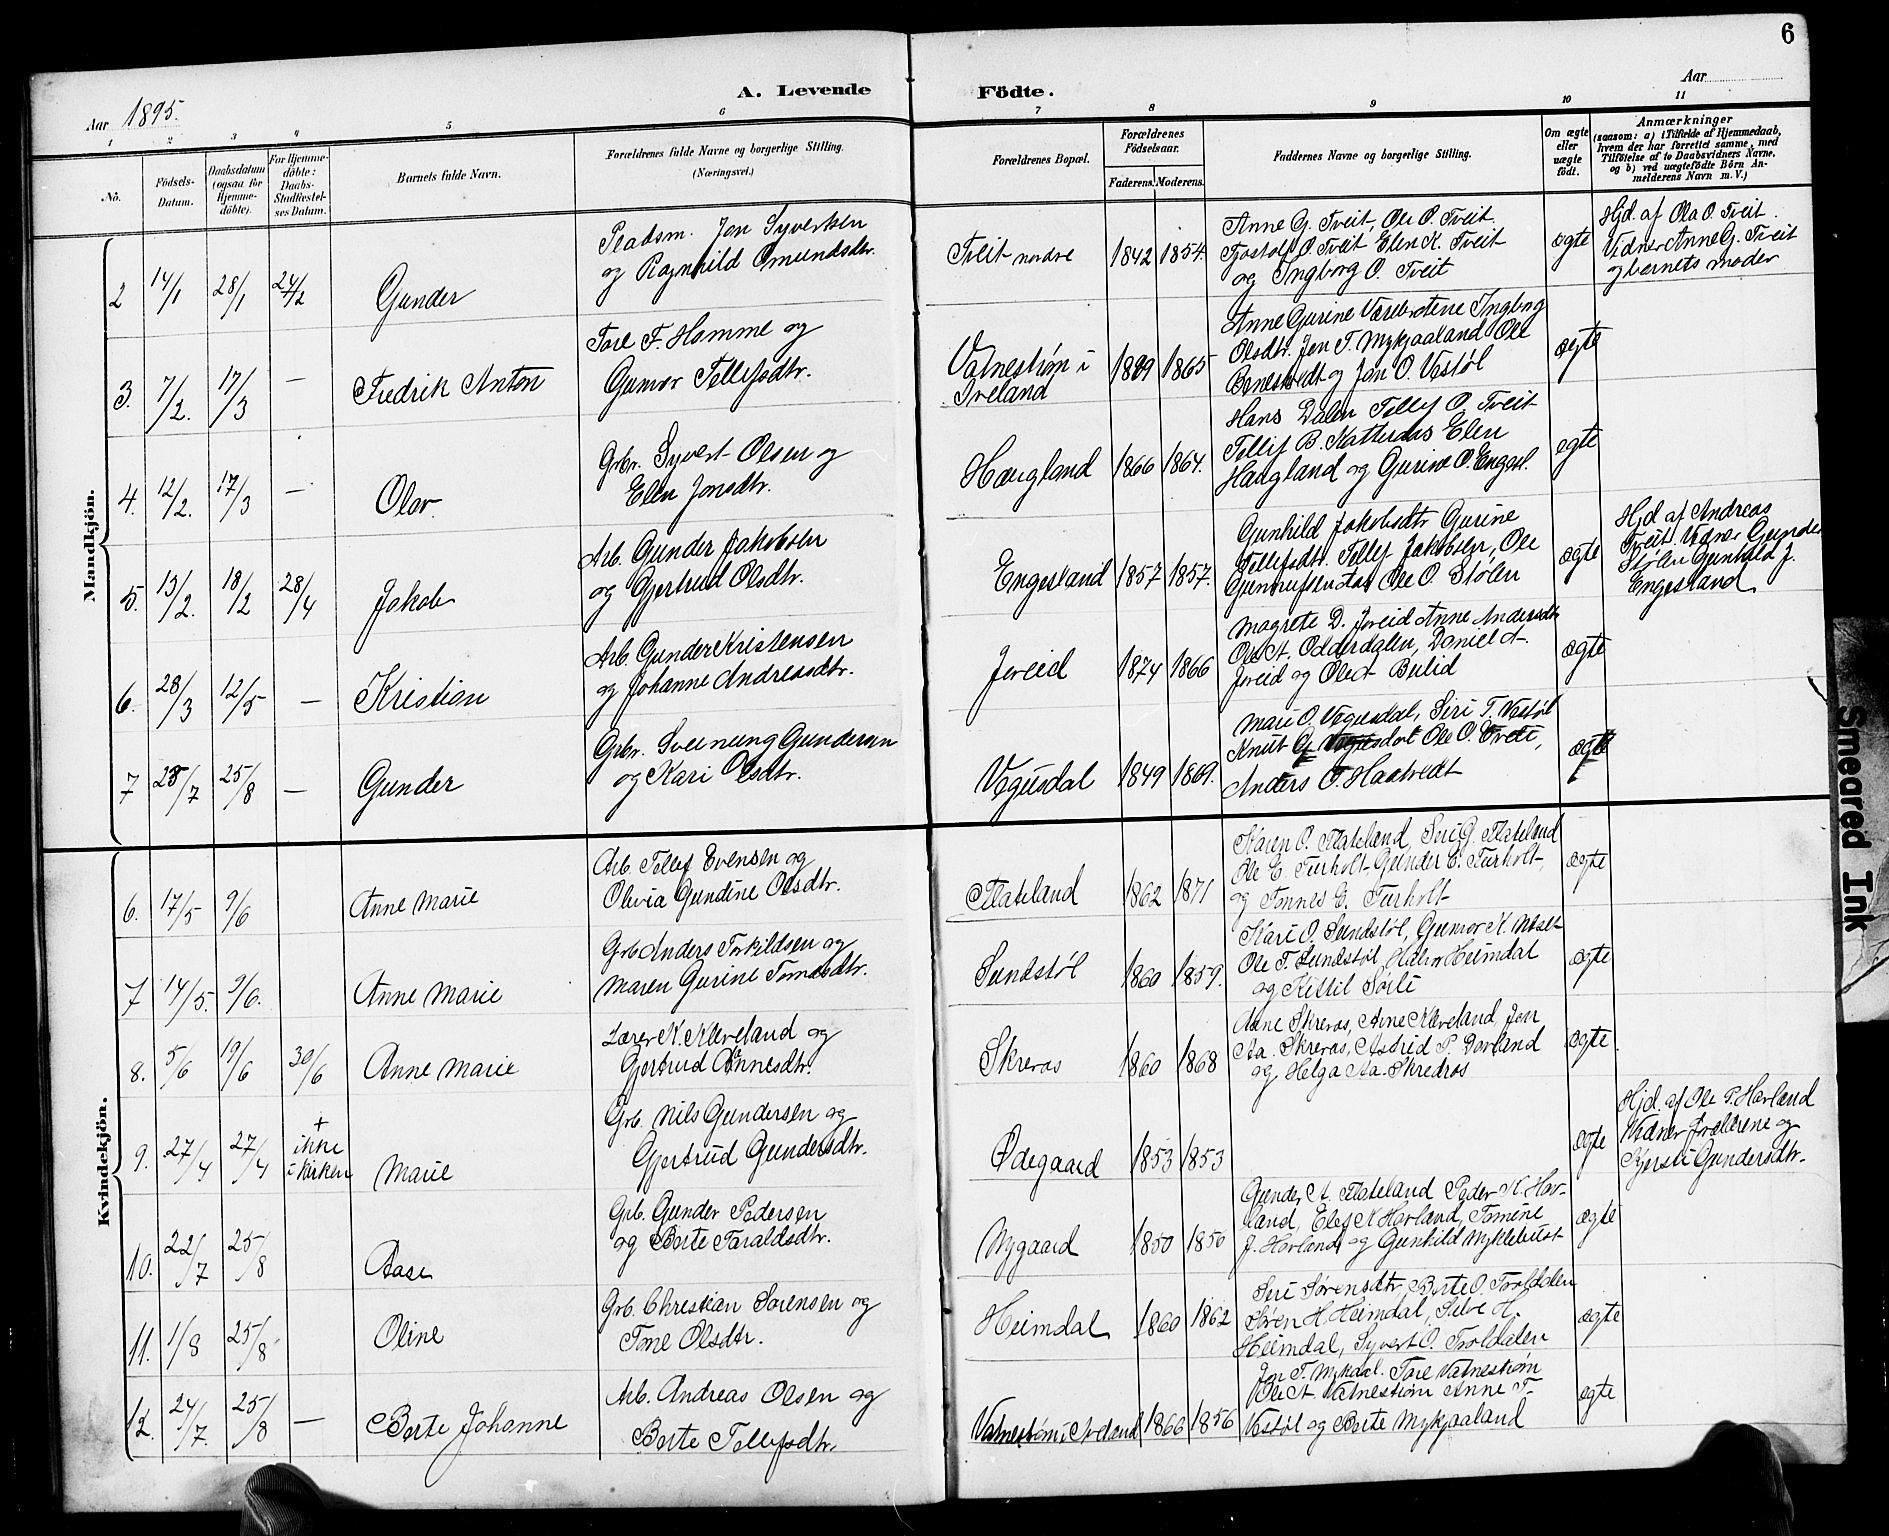 6
Aar 1895.
A. Levende Födte.
Aar
1 2 3 4 5 6 7 8 9 10 11
No.
Födsels-Datum.
Daabsdatum (ogsaa for Hjemme-döbte).
For Hjemme-döbte: Daabs-Stadfæstel-ses Datum.
Barnets fulde Navn.
Forældrenes fulde Navne og borgerlige Stilling. (Næringsvei.)
Forældrenes Bopæl.
Forældrenes Födselsaar.
Faderens. Moderens.
Faddernes Navne og borgerlige Stilling.
Om ægte eller uægte födt.
Anmærkninger
(saasom: a) i Tilfælde af Hjemmedaab, hvem der har forrettet samme, med Tilföielse af to Daabsvidners Navne, og b) ved uægtefödte Börn Anmelderens Navn m. V.)
Mandkjön.
2 14/1 28/1 24/2 Gunder
Pladsm. Jon Syvertsen
og Ragnhild Omundsdtr.
Tveit nordre 1842 1854.
Anne G. Tveit, Ole O. Tveit.
Fjostolf O. Tveit Elen K. Tveit
og Ingborg O. Tveit
ægte
Hjd. af Ola O. Tveit.
Vidner Anne G. Tveit
og barnets moder
3. 7/2. 17/3 — Fredrik Anton
Tore F. Homme og
Gumor Tellefsdtr.
Vatnestrøm i
Iveland
1865
Anne Gurine Ingborg
Olsdtr. Jon T. Mykjaaland Ole
og Jon O. Vestøl
ægte
4. 12/2. 17/3 — Olav
Grbr. Syvert Olsen og
Elen Jonsdtr.
Haugland 1866 1864.
Hans Dalen Tellef O. Tveit
Tellef B. Katteraas Elen
Haugland og Gurine O. Engesl.
ægte
5. 13/2. 18/2 28/4 Jakob
Arb. Gunder Jakobsen
og Gjertrud Olsdtr.
Engesland 1857 1857.
Gunhild Jakobsdtr Gurine
Tellefsdtr. Tellef Jakobsen, Ole
Ole O. Stølen
ægte
Hjd. af Andreas
Tveit. Vidner Gunder
Stølen Gunhild J.
Engesland
6. 28/3 12/5 — Kristian
Arb. Gunder Kristensen
og Johanne Andreasdtr.
Joreid 1874 1866
Magrete D. Joreid Anne Andersdtr
Ole A. Odderdalen, Daniel A.
Joreid og Ole A Beilid
ægte
7 28/7 25/8 — Gunder
Grbr. Sveinung Gundersen
og Kari Olsdtr.
Vegusdal 1849 1869.
Mari O. Vegusdal, Siri T. Vestøl
Knut G Vegusdal Ole O. Tveit,
Anders O. Haatvedt
ægte
Kvindekjön.
6. 17/5 9/6 Anne Marie
Arb. Tellef Evensen og
Olivia Gundine Olsdtr.
Flateland 1862 1871
Karen O. Flateland, Siri G. Flateland
Ole E. Furholt, Gunder E. Furholt,
og Tønnes G. Furholt
ægte
7 14/5. 9/6. Anne Marie
Grb Anders Torkildsen og
Maren Gurine Tomasdtr.
Sundstøl 1860 1859.
Kari O. Sundstøl, Gumor K.
Ole T. Sundstøl, Halvor Heimdal
og Kittil Sørli
ægte
8. 5/6 19/6 30/6 Anne Marie
Lærer K. Kleveland og
Gjertrud Annesdtr.
Skreros 1860 1868
Anne Skreros, Arne Kleveland, Jon
Aa. Skreros, Astrid P. Dovland
og Helga Aa. Skredros
ægte
9. 27/4 27/4 + ikke
i kirken Marie
Grb. Nils Gundersen og
Gjertrud Gundersdtr.
Ødegaard 1853 1853
ægte
Hjd. af Ole P. Harland
Vidner forældrene og
Kjersti Gundersdtr.
10. 22/7 25/8 Aase
Grb. Gunder Pedersen
og Berte Taraldsdtr.
Nygaard 1850 1850
Gunder A. Flateland Peder K. Har-
land, Elef K Harland, Tomine
J. Harland, og Gunhild Myklebust
ægte
11. 1/8 25/8 Oline
Grb. Christian Sørensen og
Tone Olsdtr.
Heimdal 1860 1862
Siri Sørensdtr, Berte O. Troldalen
Søren H. Heimdal, Selve H.
Heimdal, Syvert O. Troldalen
ægte
12. 24/7. 25/8 — Berte Johanne
Arb. Andreas Olsen og
Berte Tellefsdtr.
Vatnestrøm i Iveland 1866 1856
Jon T. Mykjaal. Tore Vatnestrøm
Ole A. Vatnestrøm Anne T.
Vestøl og Berte Mykjaaland
ægte
Smeared Ink